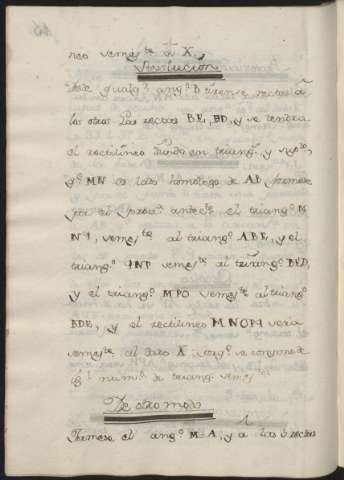 neo vemej.te a X.
Resolucion
Dese qualq.r ang.o B tirense rectas a
los otros Las rectas BE, BD, y se tendra
el rectilineo dividido en triang.s y sup.to,
q.e MN es lado homologo de AB formese
por el antec.te el triang.o M
N I, vemej.te al triang.o ABE, y el
triang.o INP vemej.te al triang.o BED,
y el triang.o MPO vemej.te al triang.o
BDE, y el rectilineo MNOPI sera
vemej.te al dato X se compone de
ig.l num.o de triang.s vemej.tes
De otro modo
Formese el ang.o M=A, y a las rectas